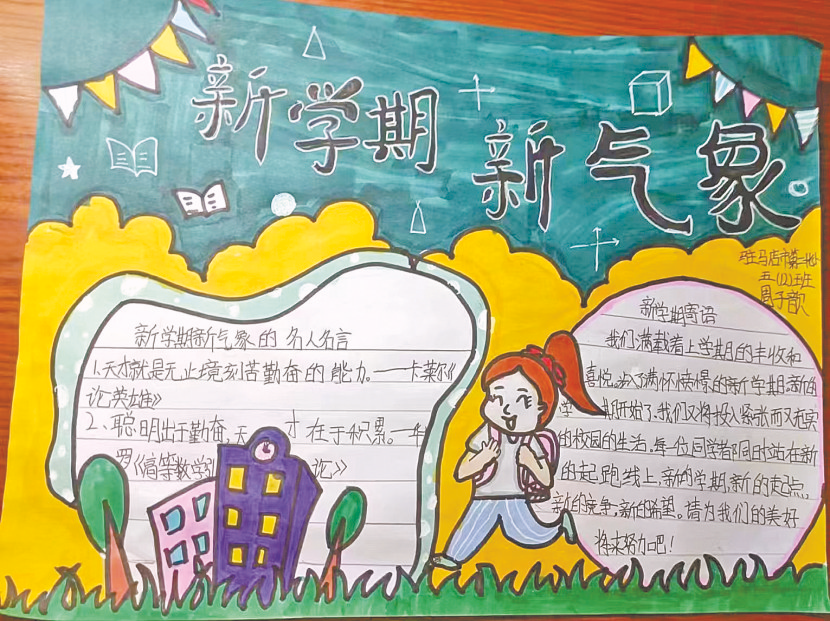 新学期
新气象
新学期新气象的名人名言
1.天才就是无止境刻苦勤奋的能力。——卡莱尔《
论英雄》
2、聪明出于勤奋,天才在于积累。—华
罗《高等数学 论》
驻马店市第一小
五(2)班
周子歆
新学期寄语
我们满载着上学期的丰收和
喜悦。步入了满怀憧憬的新学期。新的
学 期开始了,我们又将投入紧张而又充实
的校园的生活。每一位同学都同时站在新
的起跑线上,新的学期,新的起点,
新的竞争,新的希望。请为我们的美好
将来努力吧!